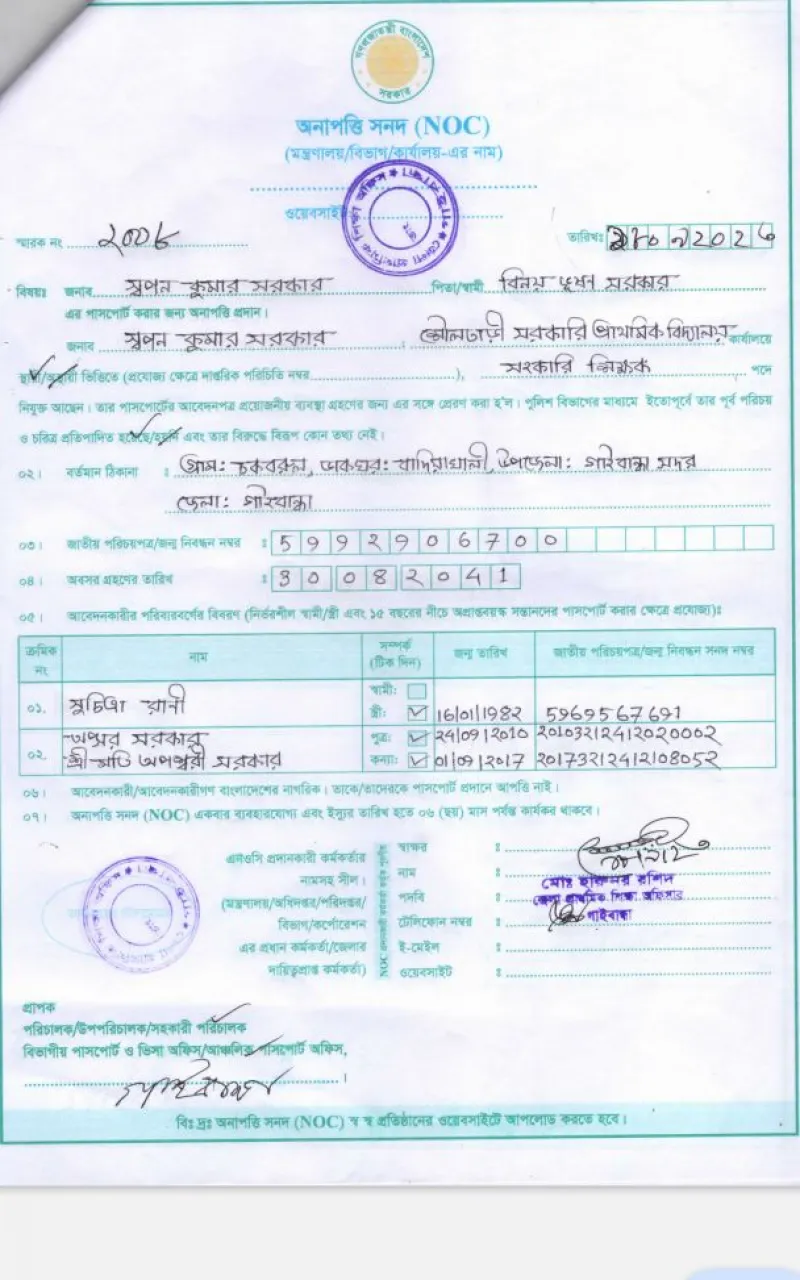 গণপ্রজাতন্ত্রী বাংলাদেশ
সরকার
অনাপত্তি সনদ (NOC)
(মন্ত্রণালয়/বিভাগ/কার্যালয়-এর নাম)
ওয়েবসাইট
স্মারক নং
তারিখঃ
বিষয়ঃ জনাব স্বপন কুমার সরকার পিতা/স্বামী বিনয় ভূষণ সরকার
এর পাসপোর্ট করার জন্য অনাপত্তি প্রদান।
জনাব স্বপন কুমার সরকার , সরকারি প্রাথমিক বিদ্যালয় কার্যালয়ে
স্থায়ী/অস্থায়ী ভিত্তিতে (প্রযোজ্য ক্ষেত্রে দাপ্তরিক পরিচিতি নম্বর), সহকারি শিক্ষক পদে
নিযুক্ত আছেন। তার পাসপোর্টের আবেদনপত্র প্রয়োজনীয় ব্যবস্থা গ্রহণের জন্য এর সঙ্গে প্রেরণ করা হ'ল। পুলিশ বিভাগের মাধ্যমে ইতোপূর্বে তার পূর্ব পরিচয়
ও চরিত্র প্রতিপাদিত হয়েছে/হয়নি এবং তার বিরুদ্ধে বিরূপ কোন তথ্য নেই।
০২। বর্তমান ঠিকানা : গ্রাম: চকবরুল, ডাকঘর: বাদিয়াখালী, উপজেলা: গাইবান্ধা সদর
জেলা: গাইবান্ধা
০৩। জাতীয় পরিচয়পত্র/জন্ম নিবন্ধন নম্বর : 5992906700
০৪। অবসর গ্রহণের তারিখ : 30082041
০৫। আবেদনকারীর পরিবারবর্গের বিবরণ (নির্ভরশীল স্বামী/স্ত্রী এবং ১৫ বছরের নীচে অপ্রাপ্তবয়স্ক সন্তানদের পাসপোর্ট করার ক্ষেত্রে প্রযোজ্য)ঃ
ক্রমিক নং নাম সম্পর্ক (টিক দিন) জন্ম তারিখ জাতীয় পরিচয়পত্র/জন্ম নিবন্ধন সনদ নম্বর
স্বামী:
০১. সুচিত্রা রানী স্ত্রী: 16/01/1982 5969567691
সরকার পুত্র: 24/09/2010 20103212412020002
০২. শ্রীমতি সরকার কন্যা: 01/09/2017 20173212412108052
০৬। আবেদনকারী/আবেদনকারীগণ বাংলাদেশের নাগরিক। তাকে/তাদেরকে পাসপোর্ট প্রদানে আপত্তি নাই।
০৭। অনাপত্তি সনদ (NOC) একবার ব্যবহারযোগ্য এবং ইস্যুর তারিখ হতে ০৬ (ছয়) মাস পর্যন্ত কার্যকর থাকবে।
স্বাক্ষর :
এনওসি প্রদানকারী কর্মকর্তার
নামসহ সীল। নাম :
(মন্ত্রণালয়/অধিদপ্তর/পরিদপ্তর/ পদবি : জেলা প্রাথমিক শিক্ষা অফিসার
বিভাগ/কর্পোরেশন টেলিফোন নম্বর : গাইবান্ধা
এর প্রধান কর্মকর্তা/জেলার ই-মেইল :
দায়িত্বপ্রাপ্ত কর্মকর্তা) ওয়েবসাইট :
প্রাপক
পরিচালক/উপপরিচালক/সহকারী পরিচালক
বিভাগীয় পাসপোর্ট ও ভিসা অফিস/আঞ্চলিক পাসপোর্ট অফিস,
বিঃ দ্রঃ অনাপত্তি সনদ (NOC) স্ব স্ব প্রতিষ্ঠানের ওয়েবসাইটে আপলোড করতে হবে।